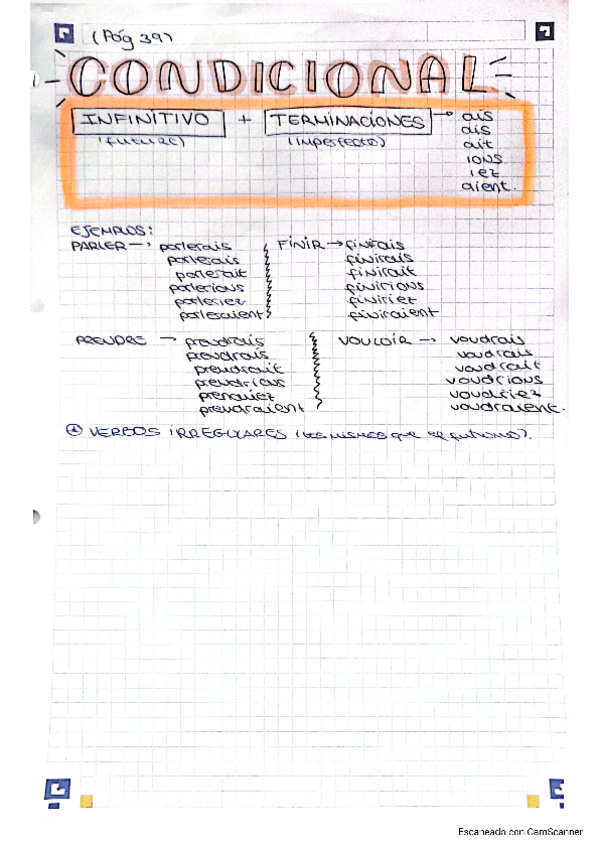 (Pág 39)
CONDICIONAL
INFINITIVO + TERMINACIONES → ais
(FUTURE) (IMPERFECTO) ais
ait
ions
iez
aient.
EJEMPLOS:
PARLER → parlerais FINIR → finirais
parlerais finirais
parlerait finirait
parlerions finirions
parleriez finiriez
parleraient finiraient
PRENDRE → prendrais VOULOIR → voudrais
prendrais voudrais
prendrait voudrait
prendrions voudrions
voudriez
prendraient voudraient.
VERBOS IRREGULARES (los mismos que el futuro).
Escaneado con CamScanner